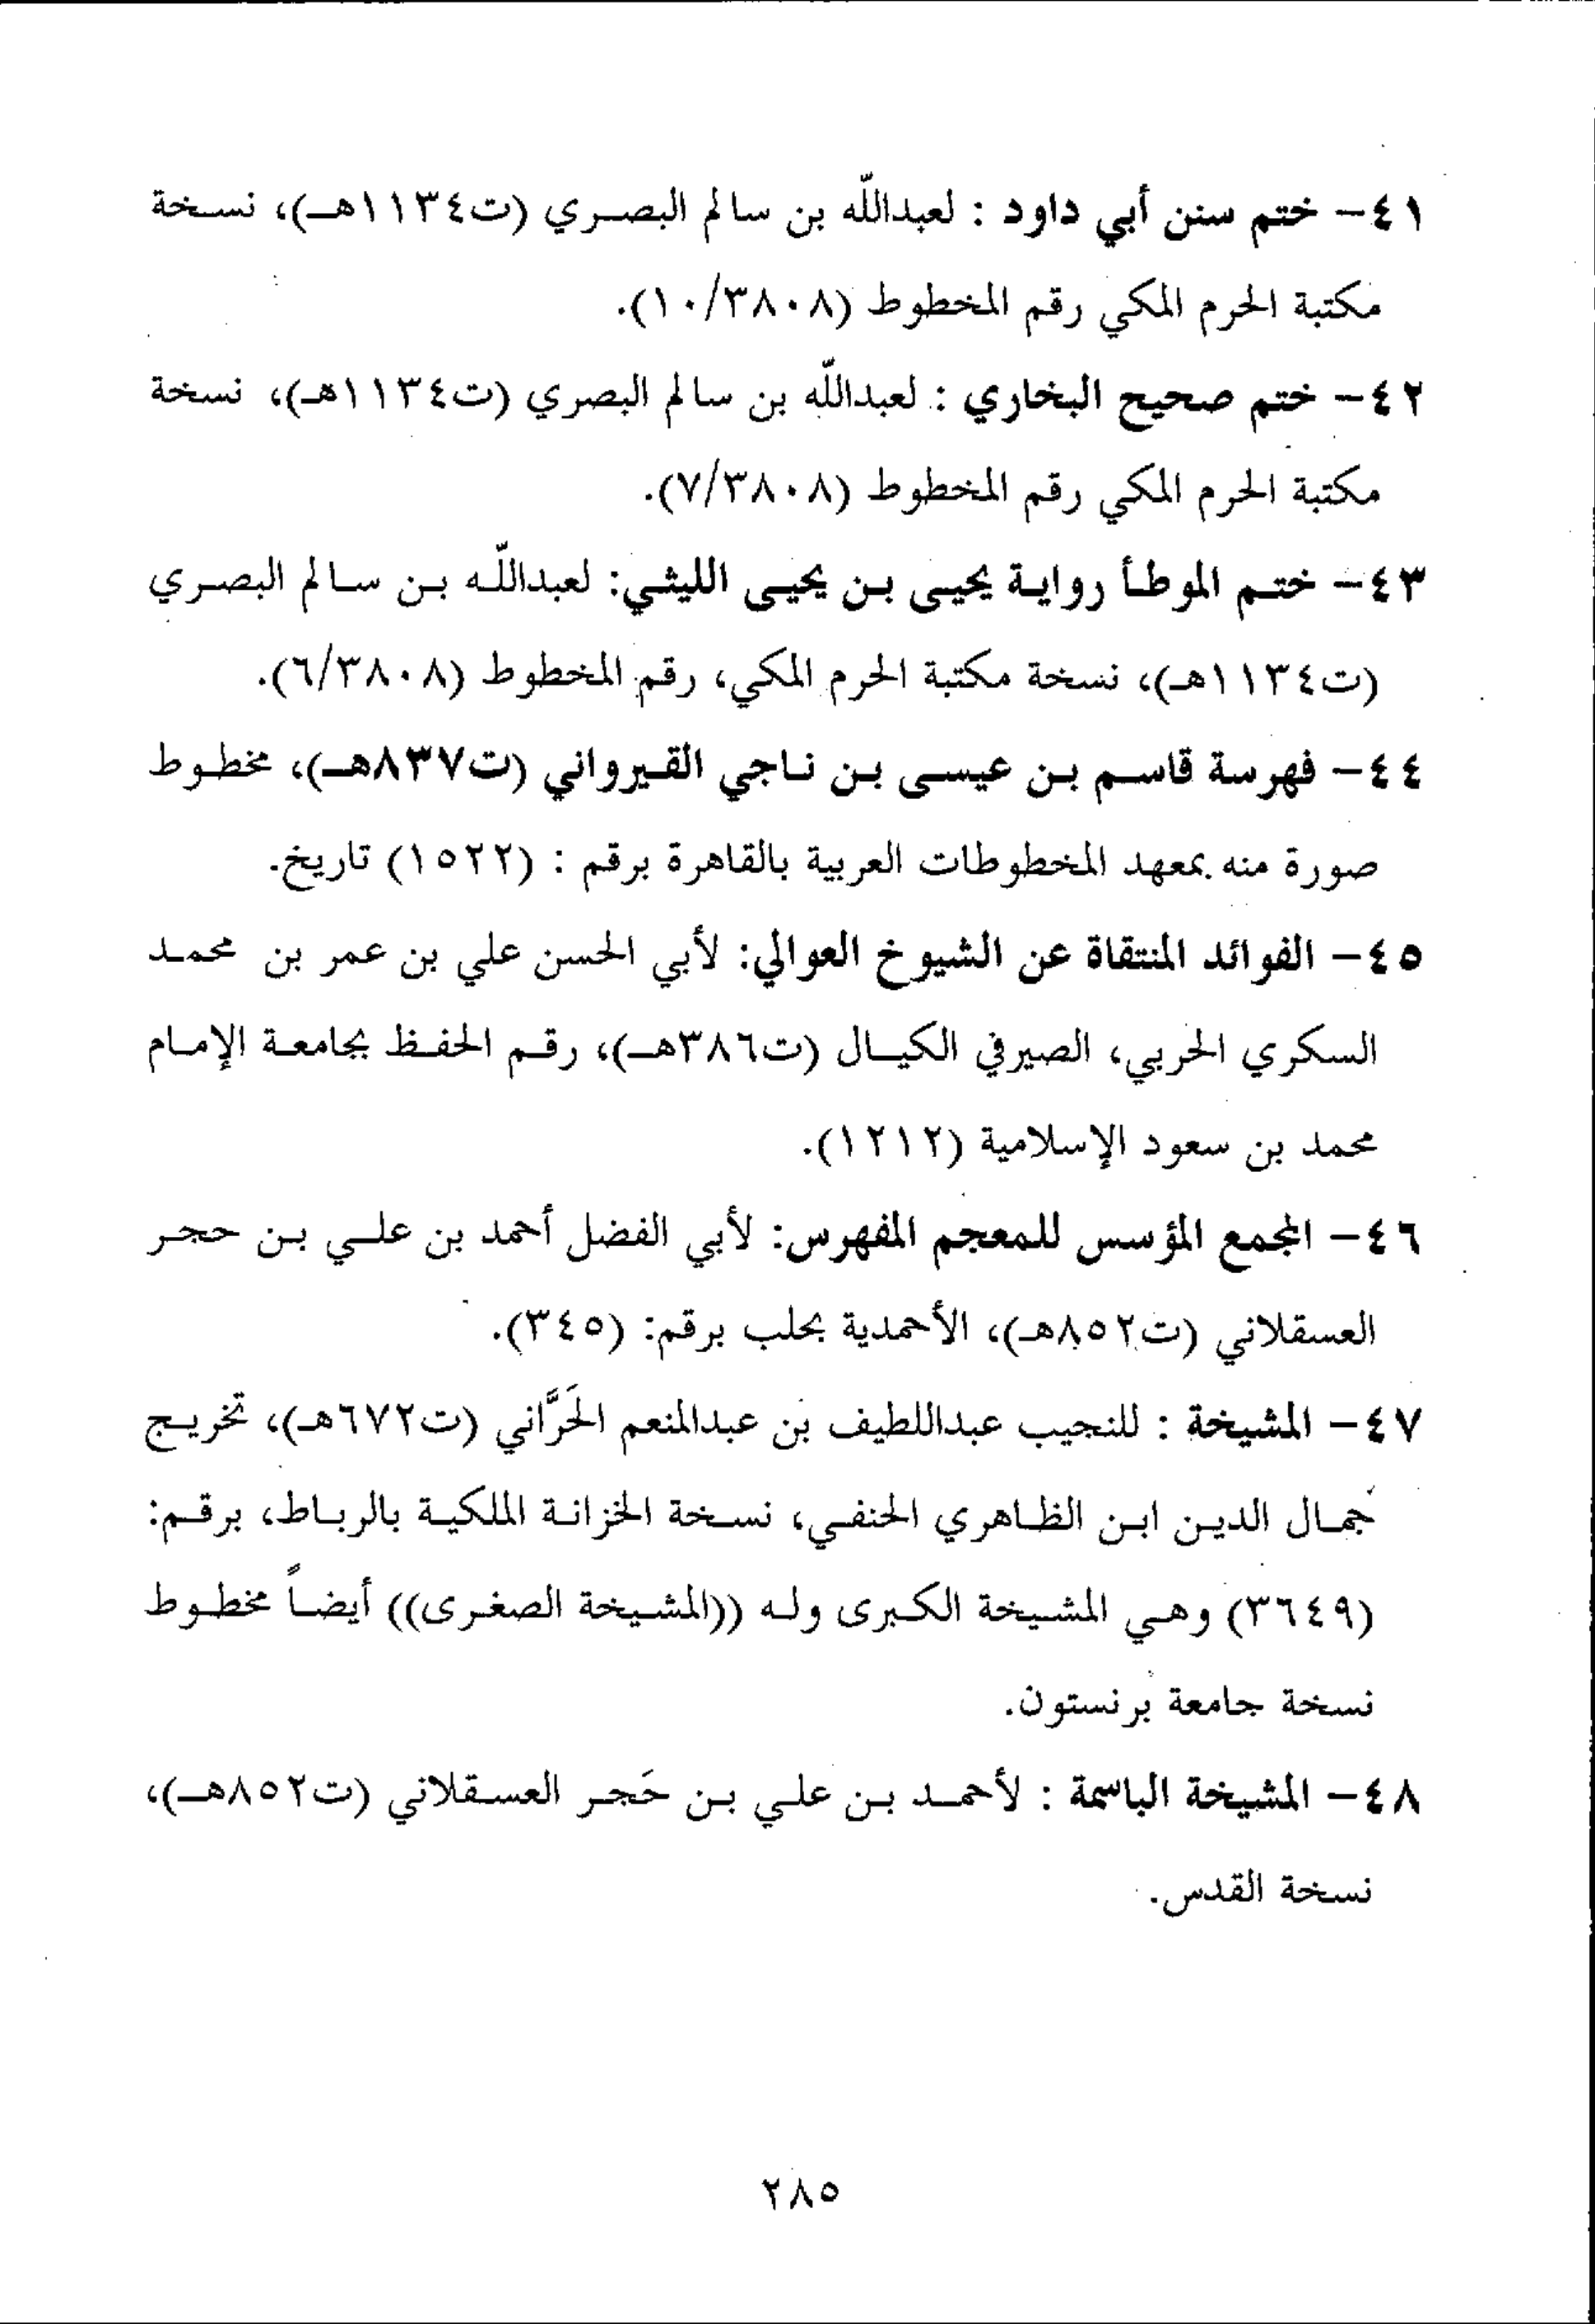 ٤١- ختم سنن أبي داود : لعبداللّه بن سالم البصري (ت١١٣٤هـ)، نسخة
مكتبة الحرم المكي رقم المخطوط (١٠/٣٨٠٨).
٤٢- ختم صحيح البخاري : لعبداللّه بن سالم البصري (ت١١٣٤هـ)، نسخة
مكتبة الحرم المكي رقم المخطوط (٧/٣٨٠٨).
٤٣- ختم الموطأ رواية يحيى بن يحيى الليثي: لعبداللّه بن سالم البصري
(ت١١٣٤هـ)، نسخة مكتبة الحرم المكي، رقم المخطوط (٦/٣٨٠٨).
٤٤- فهرسة قاسم بن عيسى بن ناجي القيرواني (ت٨٣٧هـ)، مخطوط
صورة منه بمعهد المخطوطات العربية بالقاهرة برقم : (١٥٢٢) تاريخ.
٤٥- الفوائد المنتقاة عن الشيوخ العوالي: لأبي الحسن علي بن عمر بن محمد
السكري الحربي، الصيرفي الكيال (ت٣٨٦هـ)، رقم الحفظ بجامعة الإمام
محمد بن سعود الإسلامية (١٢١٢).
٤٦- المجمع المؤسس للمعجم المفهرس: لأبي الفضل أحمد بن علي بن حجر
العسقلاني (ت٨٥٢هـ)، الأحمدية بحلب برقم: (٣٤٥).
٤٧- المشيخة : للنجيب عبداللطيف بن عبدالمنعم الحَرَّاني (ت٦٧٢هـ)، تخريج
جمال الدين ابن الظاهري الحنفي، نسخة الخزانة الملكية بالرباط، برقم:
(٣٦٤٩) وهي المشيخة الكبرى وله ((المشيخة الصغرى)) أيضاً مخطوط
نسخة جامعة برنستون.
٤٨- المشيخة الباسمة : لأحمد بن علي بن حَجر العسقلاني (ت٨٥٢هـ)،
نسخة القدس.
٢٨٥